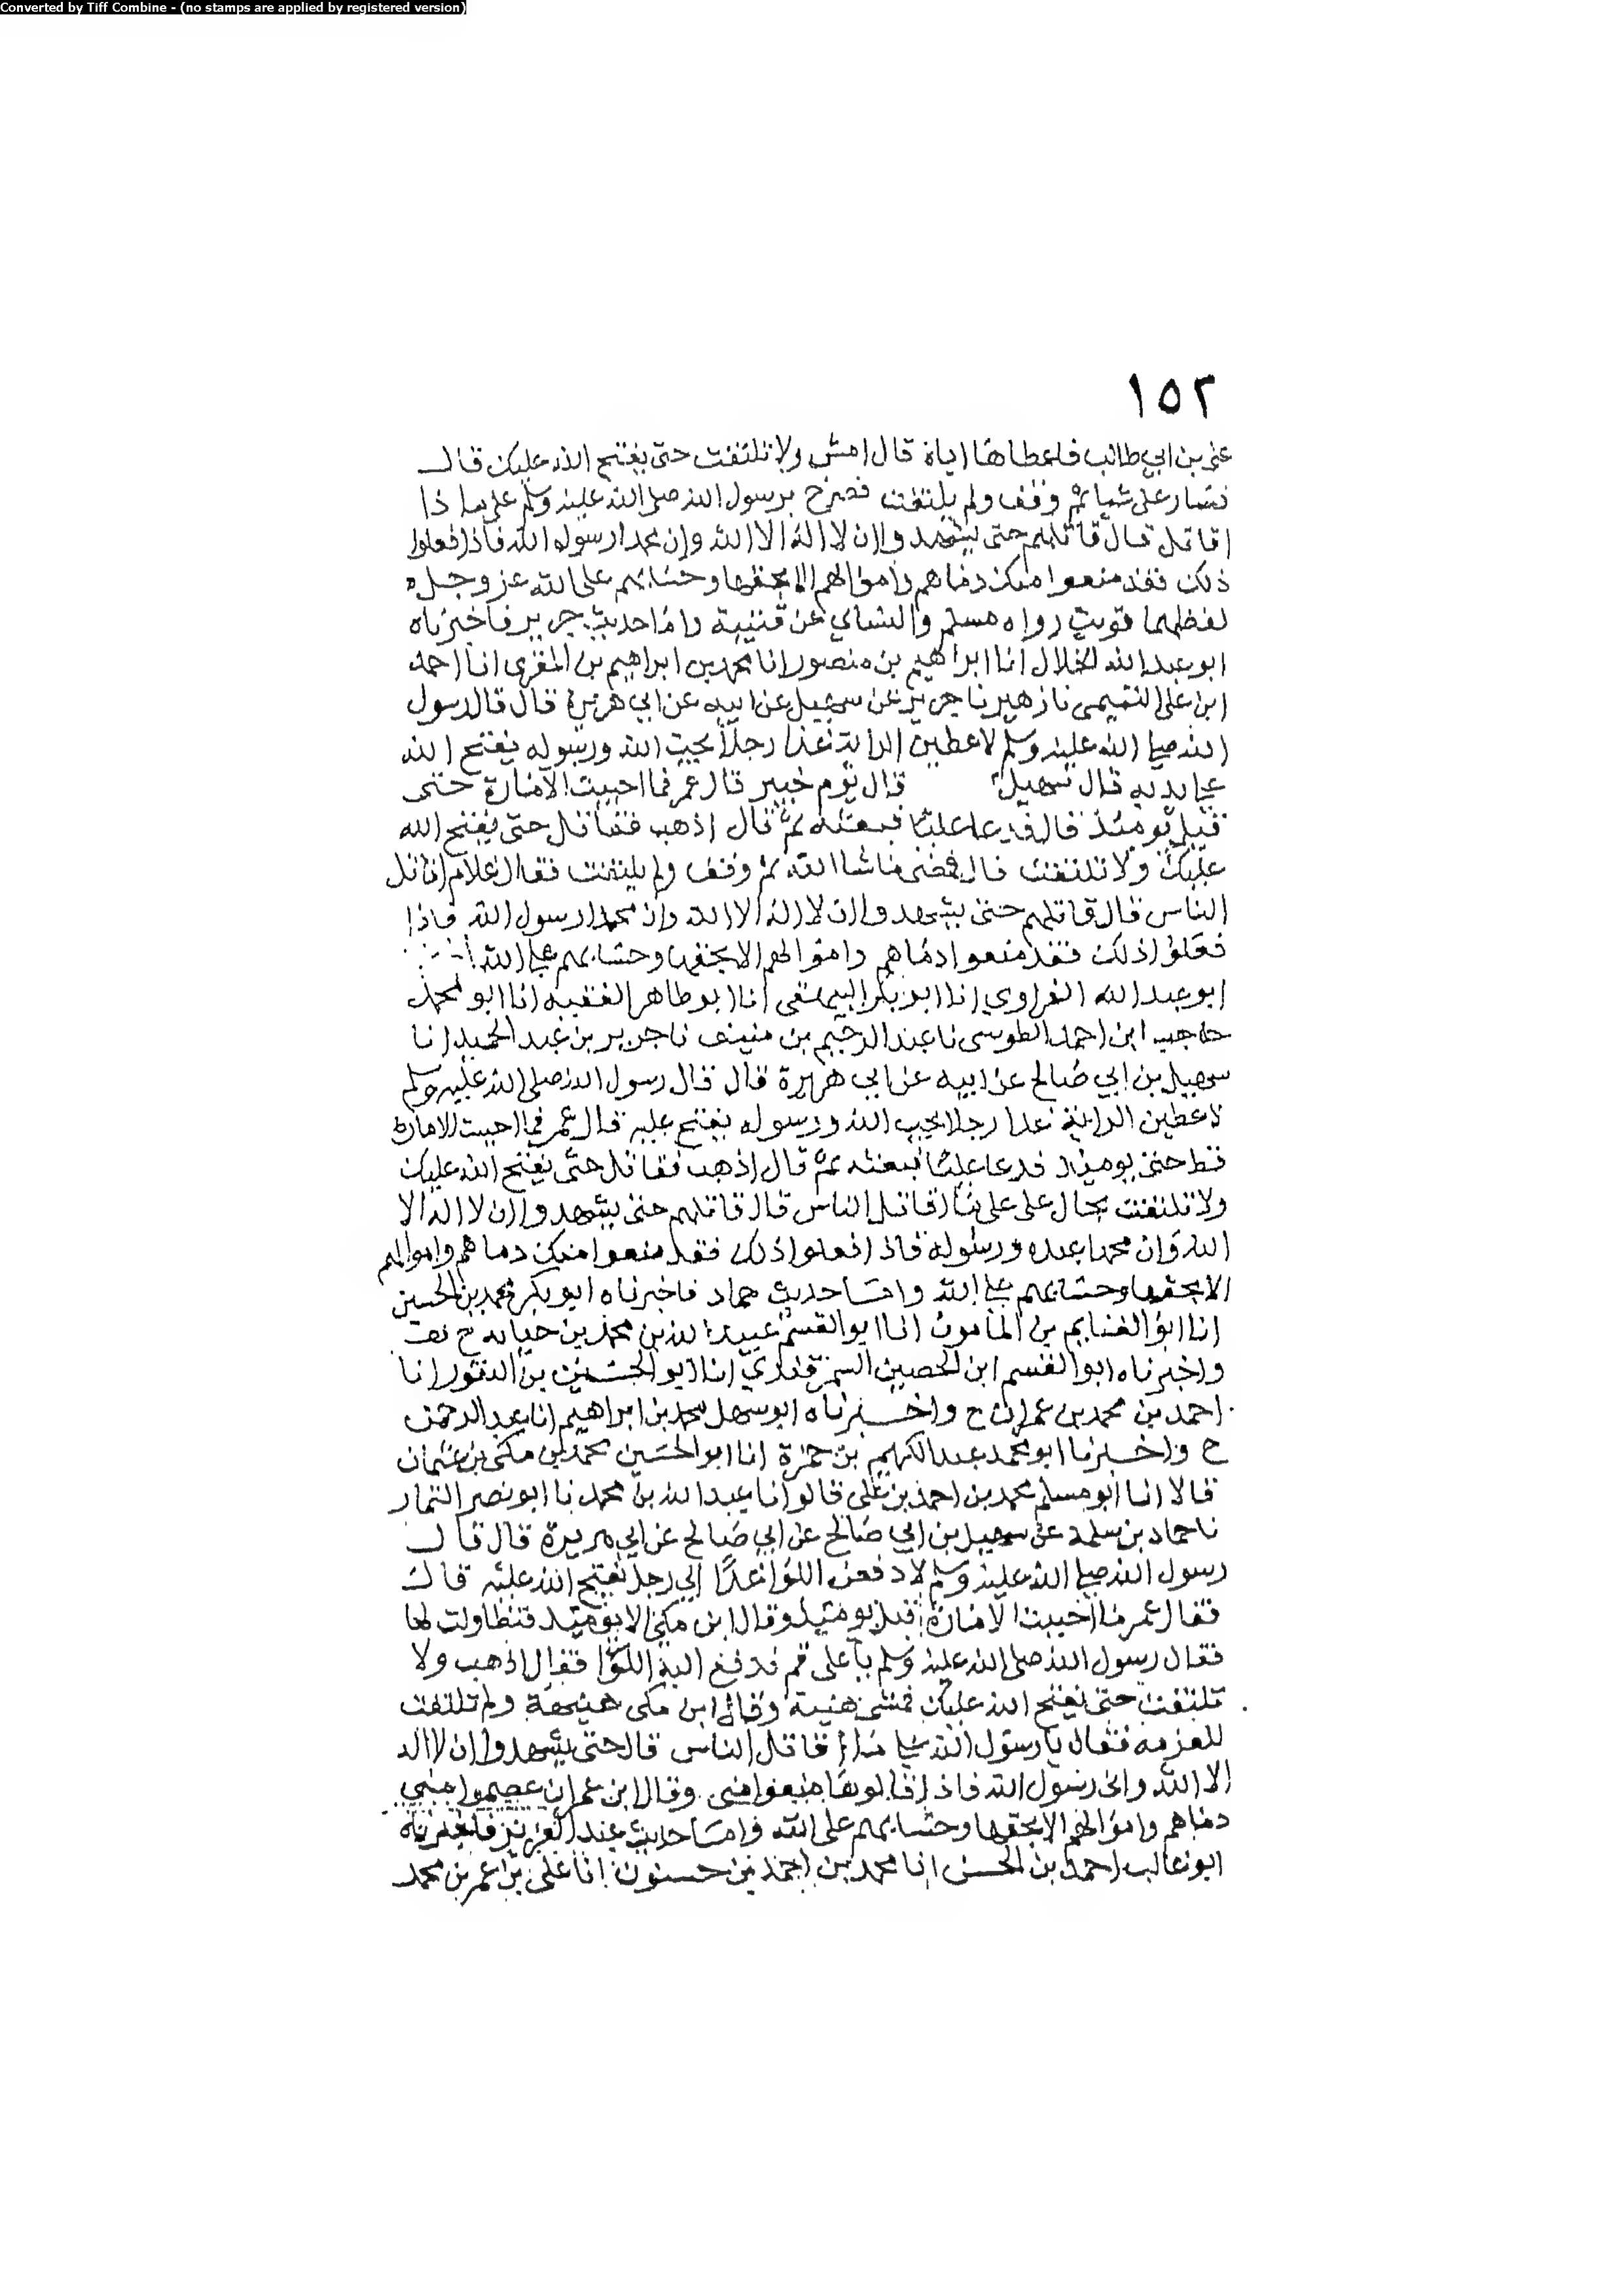 Converted by Tiff Combine - (no stamps are applied by registered version)
١٥٢
علي بن ابي طالب فاعطاها اياه قال امش ولا تلتفت حتى يفتح الله عليك قال
فسار على شيا ثم وقف ولم يلتفت فصرخ برسول الله صلى الله عليه وسلم على ما ذا
اقاتل قال قاتلهم حتى يشهدوا ان لا اله الا الله وان محمدا رسول الله فاذا فعلوا
ذلك فقد منعوا منك دماهم واموالهم الا بحقها وحسابهم على الله عز وجل
لفظهما قريب رواه مسلم والنساي عن قتيبة واما حديث جرير فاخبرناه
ابو عبد الله الخلال انا ابراهيم بن منصور انا محمد بن ابراهيم بن المقري انا احمد
ابن علي التميمي نا زهير نا جرير عن سهيل عن ابيه عن ابي هريرة قال قال رسول
الله صلى الله عليه وسلم لاعطين الراية غدا رجلا يحب الله ورسوله يفتح الله
على يديه قال سهيل قال يوم خيبر قال عمر فما احببت الامارة حتى
قيل يومئذ قال فدعا عليا فبعثه ثم قال اذهب فقاتل حتى يفتح الله
عليك ولا تلتفت قال فمضى ما شا الله ثم وقف ولم يلتفت فقال علام اقاتل
الناس قال قاتلهم حتى يشهدوا ان لا اله الا الله وان محمدا رسول الله فاذا
فعلوا ذلك فقد منعوا دماهم واموالهم الا بحقها وحسابهم على الله
ابو عبد الله الفراوي انا ابو بكر البيهقي انا ابو طاهر الفقيه انا ابو محمد
حاجب ابن احمد الطوسي نا عبد الرحيم بن منيب نا جرير بن عبد الحميد انا
سهيل بن ابي صالح عن ابيه عن ابي هريرة قال قال رسول الله صلى الله عليه وسلم
لاعطين الراية غدا رجلا يحب الله ورسوله يفتح عليه قال عمر فما احببت الامارة
قط حتى يومئذ فدعا عليا فبعثه ثم قال اذهب فقاتل حتى يفتح الله عليك
ولا تلتفت قال علي على ما اقاتل الناس قال قاتلهم حتى يشهدوا ان لا اله الا
الله وان محمدا عبده ورسوله فاذا فعلوا ذلك فقد منعوا منك دماهم واموالهم
الا بحقها وحسابهم على الله واما حديث حماد فاخبرناه ابو بكر محمد بن الحسين
انا ابو الغنايم بن المامون انا ابو القسم عبيد الله بن محمد بن حبابه ح
واخبرناه ابو القسم ابن الحصين السمرقندي انا ابو الحسين بن النقور انا
احمد بن محمد بن عمران ح واخبرناه ابو سهل محمد بن ابراهيم انا عبد الرحمن
ح واخبرنا ابو محمد عبد الكريم بن حمزة انا ابو الحسين محمد بن مكي بن عثمان
قالا انا ابو مسلم محمد بن احمد بن علي قالوا نا عبد الله بن محمد نا ابو نصر التمار
نا حماد بن سلمه عن سهيل بن ابي صالح عن ابي صالح عن ابي هريرة قال قال
رسول الله صلى الله عليه وسلم لادفعن اللوا غدا الى رجل يفتح الله عليه قال
فقال عمر ما احببت الامارة قبل يومئذ وقال ابن مكي الا يومئذ فتطاولت لها
فقال رسول الله صلى الله عليه وسلم يا علي قم فدفع اليه اللوا فقال اذهب ولا
تلتفت حتى يفتح الله عليك فمشى هنية وقال ابن مكي هنيهة ولم تلتفت
للعزمه فقال يا رسول الله على ما اقاتل الناس قال حتى يشهدوا ان لا اله
الا الله واني رسول الله فاذا قالوها منعوا مني وقال ابن عمران عصموا مني
دماهم واموالهم الا بحقها وحسابهم على الله واما حديث عبد العزيز فاخبرناه
ابو غالب احمد بن الحسن انا محمد بن احمد بن حسنون انا علي بن عمر بن محمد